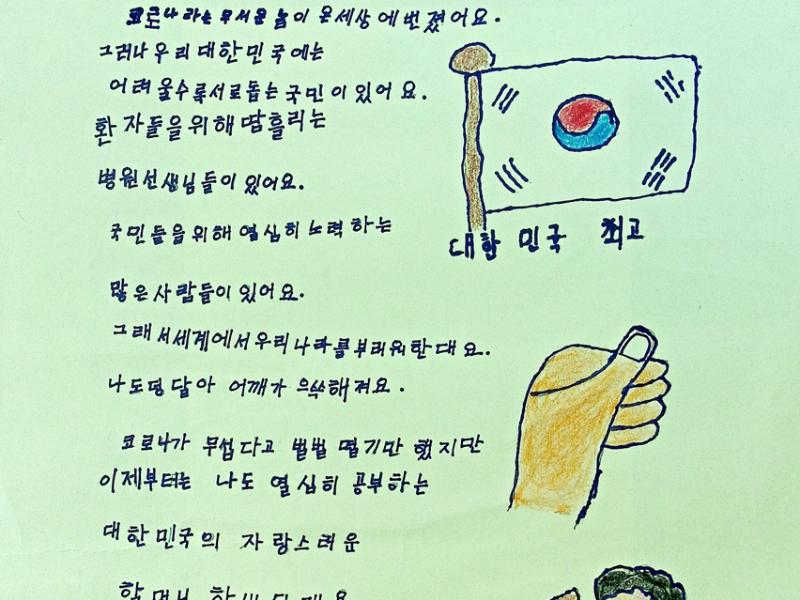 코로나라는 무서운 놈이 온세상에 번졌어요.
그러나 우리 대한민국에는
어려울수록 서로 돕는 국민이 있어요.
환자들을 위해 땀흘리는
병원선생님들이 있어요.
국민들을 위해 열심히 노력하는
많은 사람들이 있어요.
그래서 세계에서 우리나라를 부러워한대요.
나도 덩달아 어깨가 으쓱해져요.
코로나가 무섭다고 벌벌 떨기만 했지만
이제부터는 나도 열심히 공부하는
대한민국의 자랑스러운
대한민국 최고